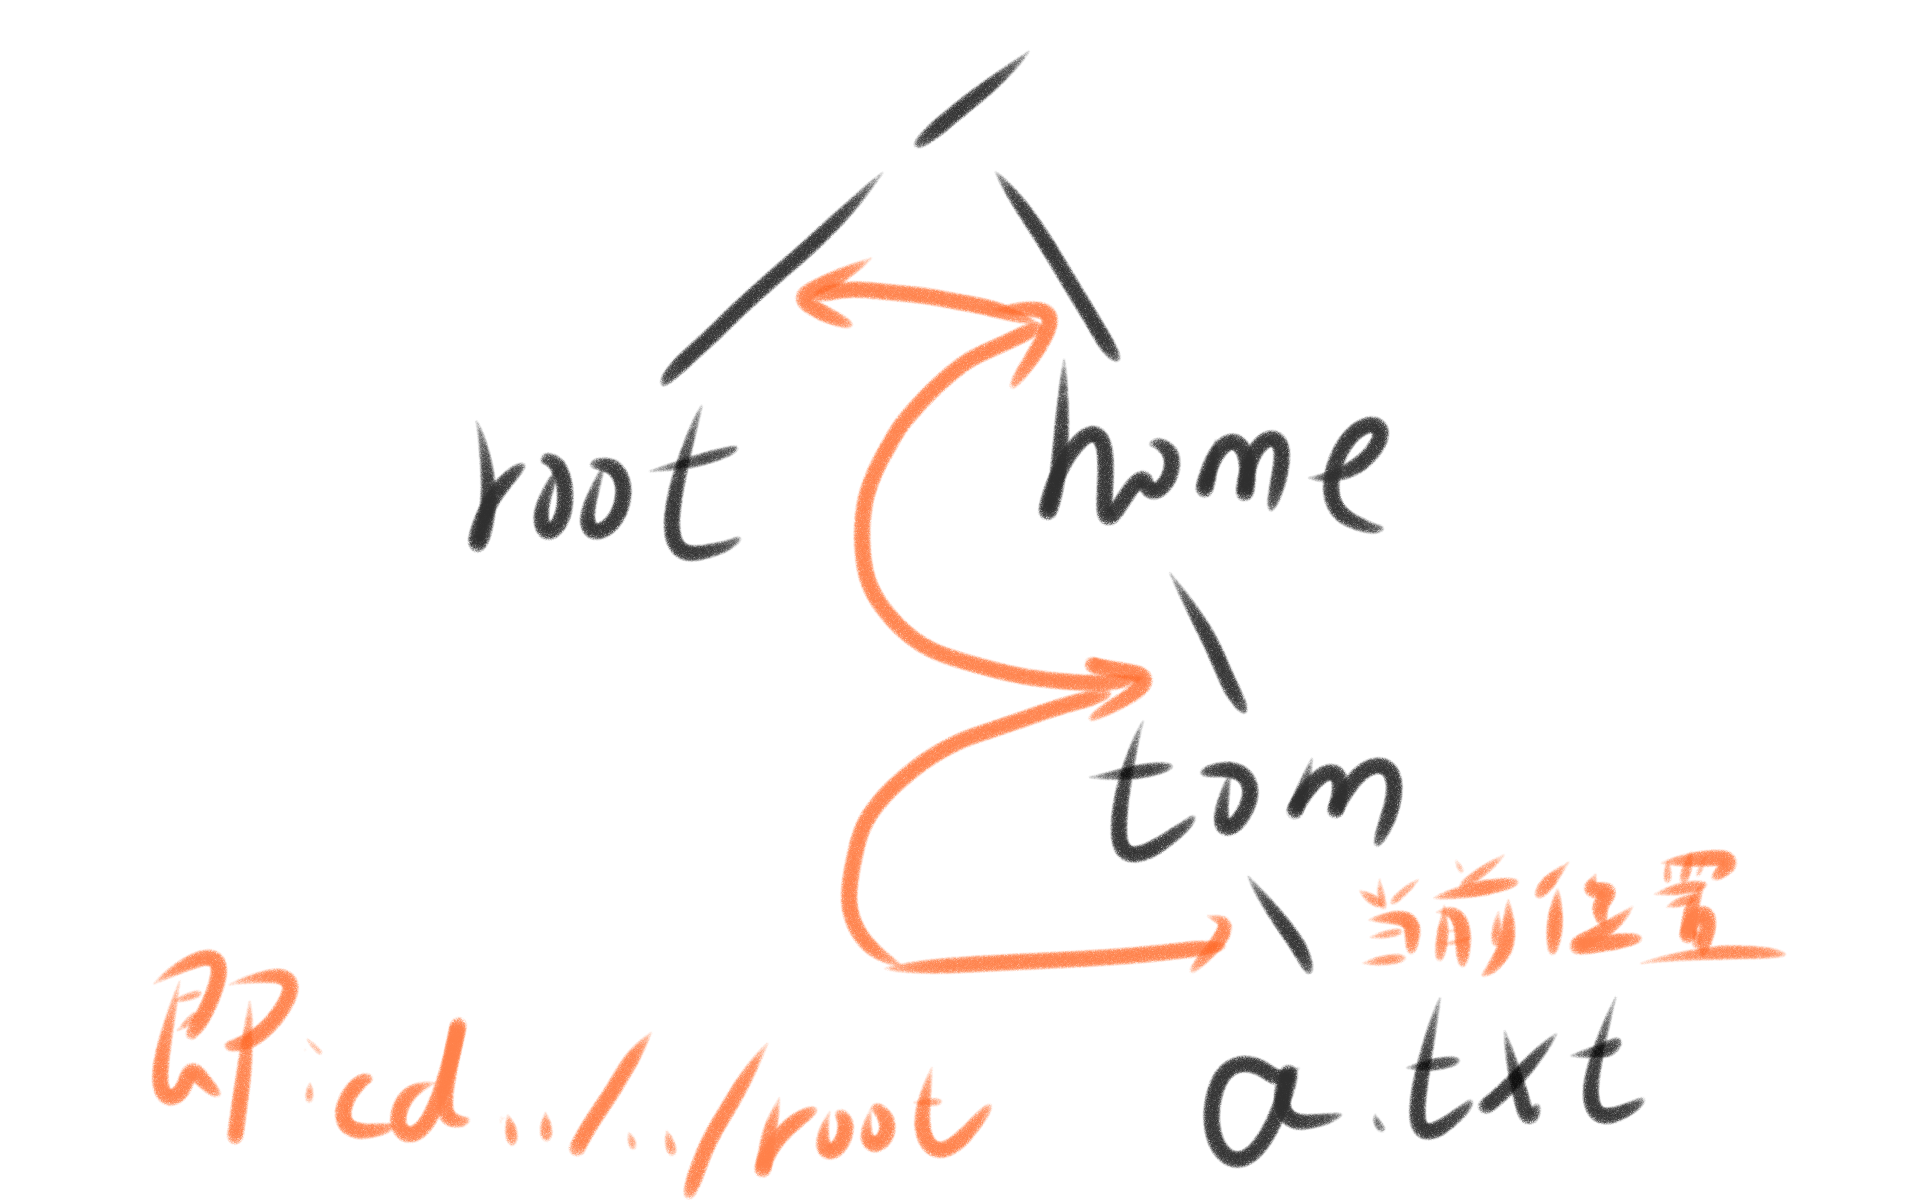 /
root home
tom
当前位置
a.txt
即:cd ../../root